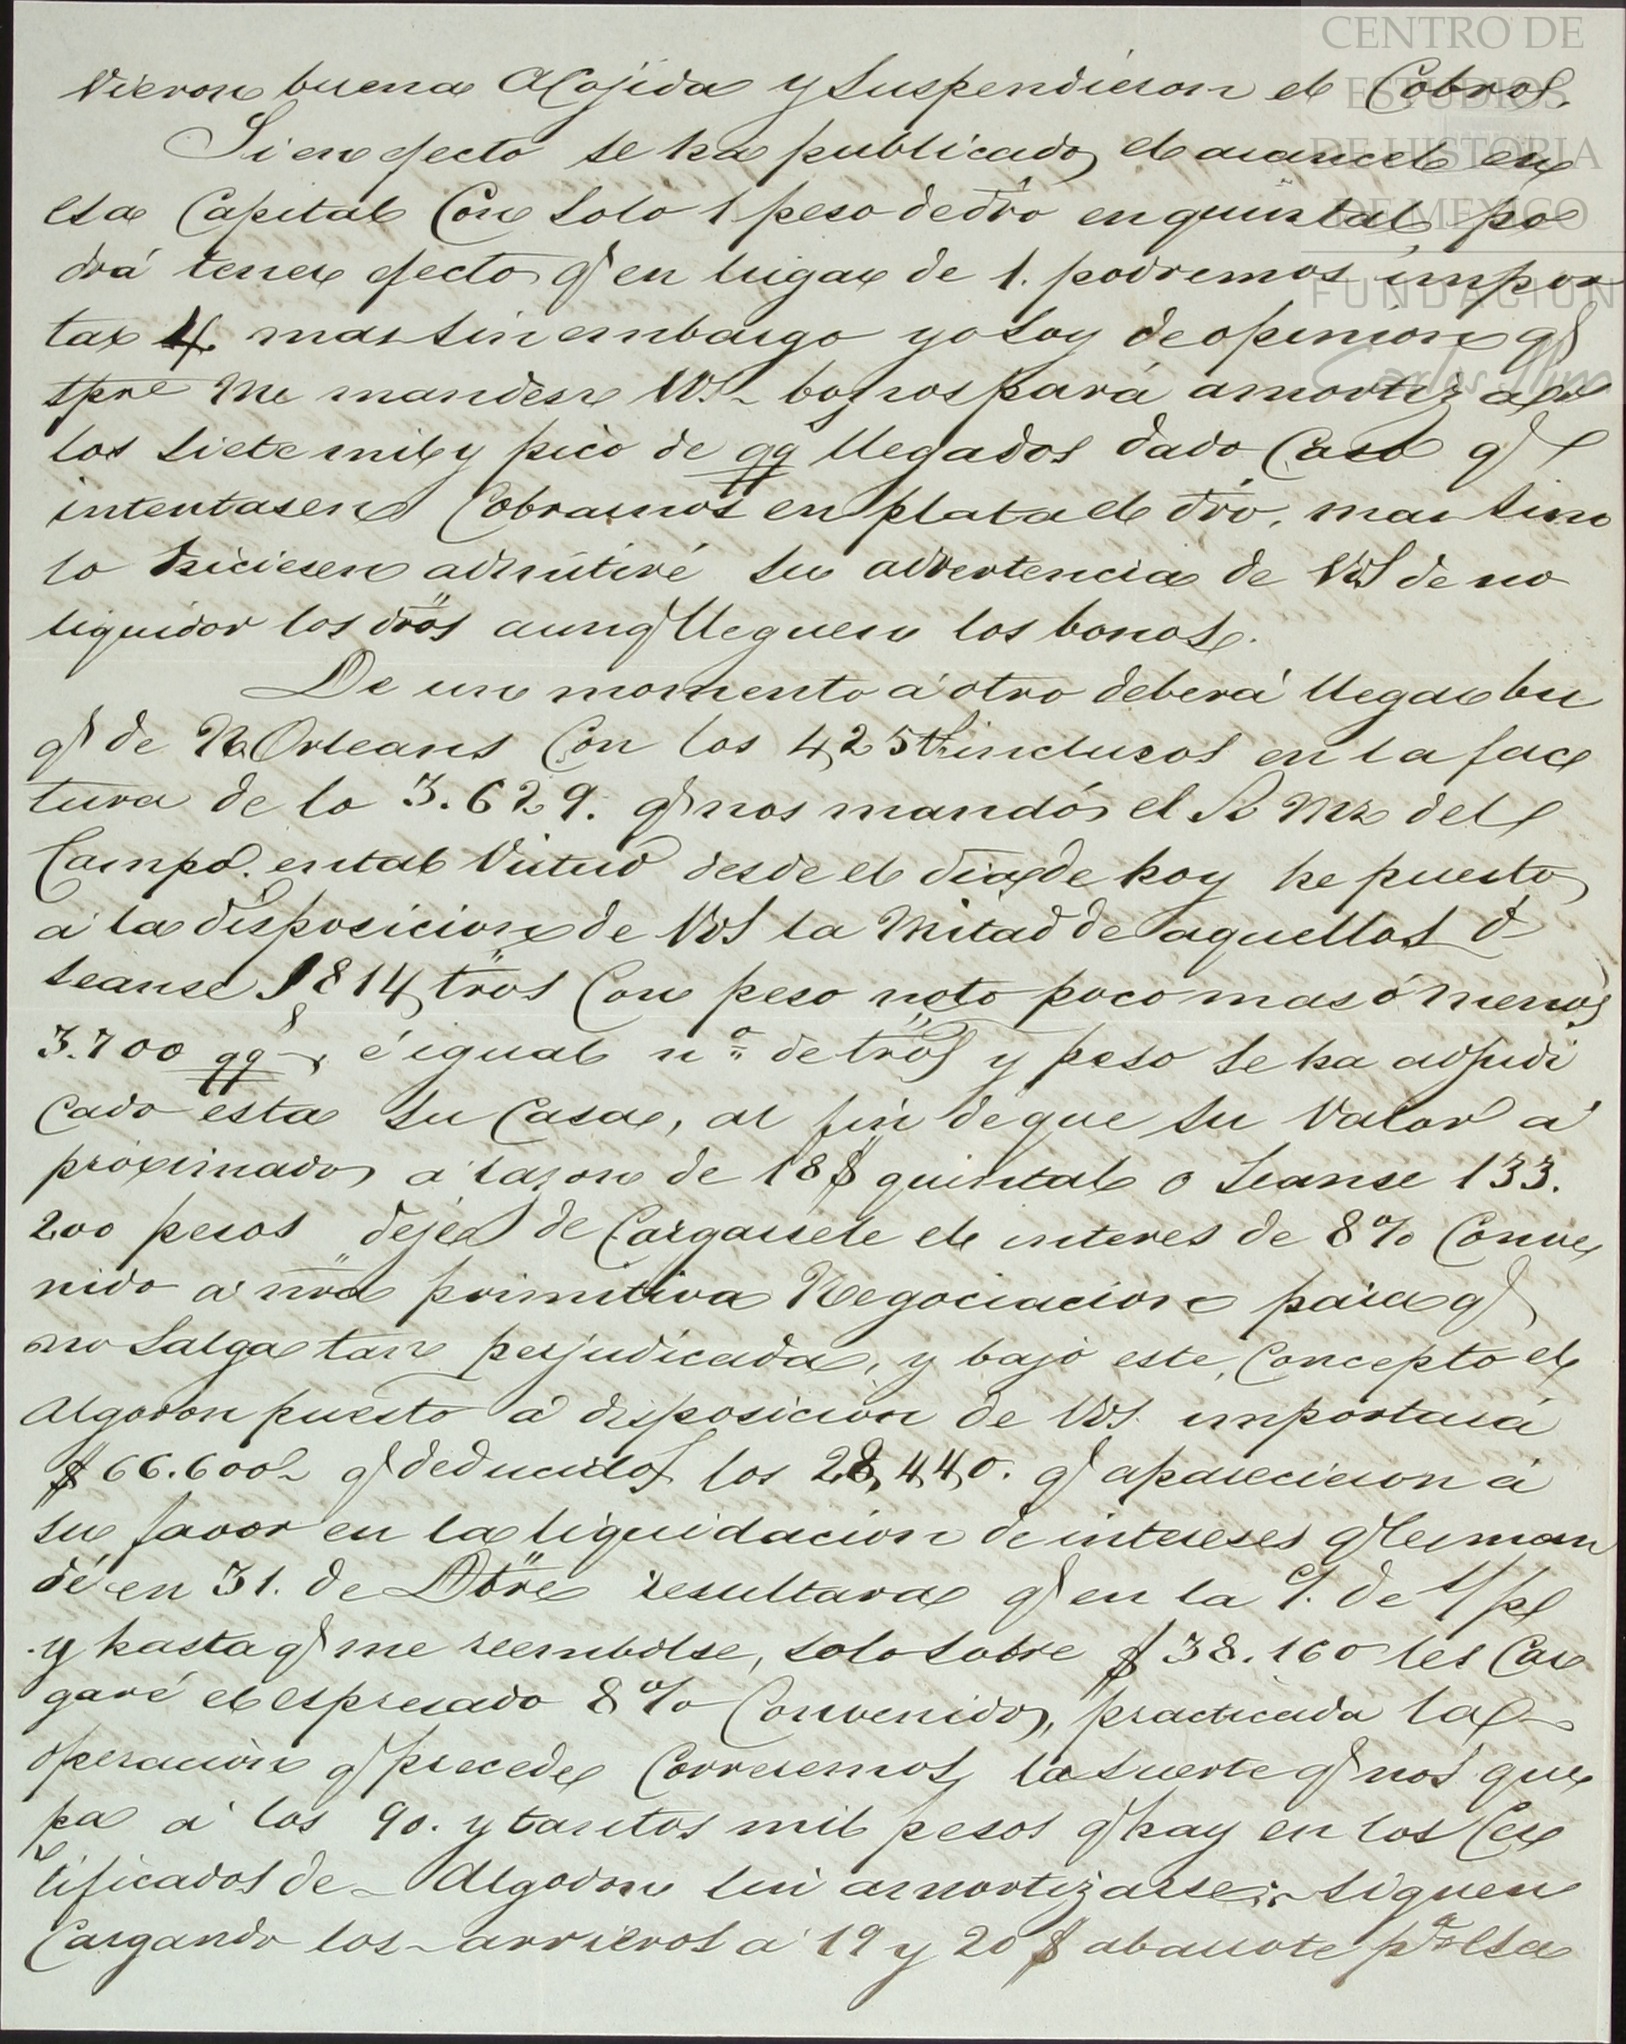 CENTRO DE
ESTUDIOS
DE HISTORIA
DE MEXICO
FUNDACION
Carlos Slim
vieron buena acojida y suspendieron el Cobro.
Si en efecto se ha publicado el arancel en
esa Capital Con solo 1 peso de dro en quintal, po
drá tener efecto q en lugar de 1. podremos impor
tar 4. mas sin embargo yo soy de opinion q
spre me manden VS. bonos pará amortizar
los siete mil y pico de qq llegados dado Caso q
intentasen Cobrarnos en plata el dro, mas sino
lo hiciesen admitiré su advertencia de VdS de no
liquidar los dros aunq lleguen los bonos.
De un momento á otro deberá llegar bu
q de N. Orleans Con los 425 inclusos en la fac
tura de lo 3.629. q nos mandó el Sr Mz del
Campo. en tal virtud desde el dia de hoy he puesto
á la disposicion de VdS la Mitad de aquellos ó
seanse 1814 tros Con peso neto poco mas ó menos
3.700 qq é igual nº de tros y peso se ha adjudi
cado esta su Casa, al fin de que su valor a
proximado á razon de 18$ quintal o seanse 133.
200 pesos deje de Cargarsele el interes de 8% Conve
nido á nra primitiva Negociacion para q
no salga tan perjudicada, y bajo este Concepto el
Algodon puesto á disposicion de VdS. importará
$66.600 q deducidos los 28,440. q aparecieron á
su favor en la liquidacion de intereses q les man
dé en 31. de Dbre resultara q en la C/. de
y hasta q me reembolse, solo sobre $38.160 les Car
garé el espresado 8% Convenido, practicada la
operacion q precede Correremos la suerte q nos que
pa á los 90. y tantos mil pesos q hay en los Cer
tificados de Algodon sin amortizarse; siguen
Cargando los arrieros á 19 y 20$ abarrote pª esa